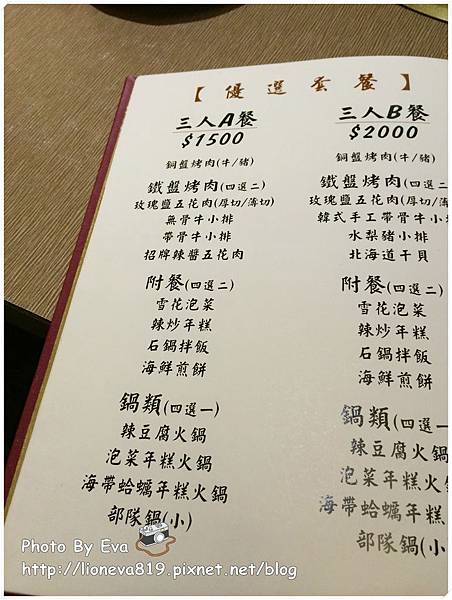 【優選套餐】
三人A餐
$1500
銅盤烤肉(牛/豬)
鐵盤烤肉(四選二)
玫瑰鹽五花肉(厚切/薄切)
無骨牛小排
帶骨牛小排
招牌辣醬五花肉
附餐(四選二)
雪花泡菜
辣炒年糕
石鍋拌飯
海鮮煎餅
鍋類(四選一)
辣豆腐火鍋
泡菜年糕火鍋
海帶蛤蠣年糕火鍋
部隊鍋(小)
三人B餐
$2000
銅盤烤肉(牛/豬)
鐵盤烤肉(四選二
玫瑰鹽五花肉(厚切/薄切
韓式手工帶骨牛小
水梨豬小排
北海道干貝
附餐(四選二)
雪花泡菜
辣炒年糕
石鍋拌飯
海鮮煎餅
鍋類(四選一
辣豆腐火鍋
泡菜年糕火鍋
海帶蛤蠣年糕火
部隊鍋(小
Photo By Eva
http://lioneva819.pixnet.net/blog